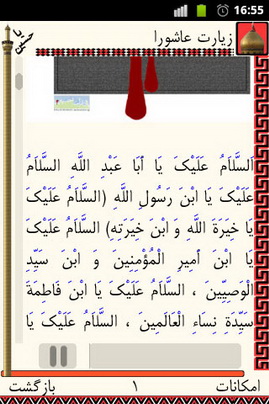 16:55
زيارت عاشورا
يا حسين
اَلسَّلاَمُ عَلَيْکَ يَا اَبَا عَبْدِ اللَّهِ السَّلاَمُ
عَلَيْکَ يَا ابْنَ رَسُولِ اللَّهِ (السَّلاَمُ عَلَيْکَ
يَا خِيَرَةَ اللَّهِ وَ ابْنَ خِيَرَتِهِ) السَّلاَمُ عَلَيْکَ
يَا ابْنَ اَمِيرِ الْمُؤْمِنِينَ وَ ابْنَ سَيِّدِ
الْوَصِيِّينَ ، السَّلاَمُ عَلَيْکَ يَا ابْنَ فَاطِمَةَ
سَيِّدَةِ نِسَاءِ الْعَالَمِينَ ، السَّلاَمُ عَلَيْکَ يَا
امکانات ۱ بازگشت